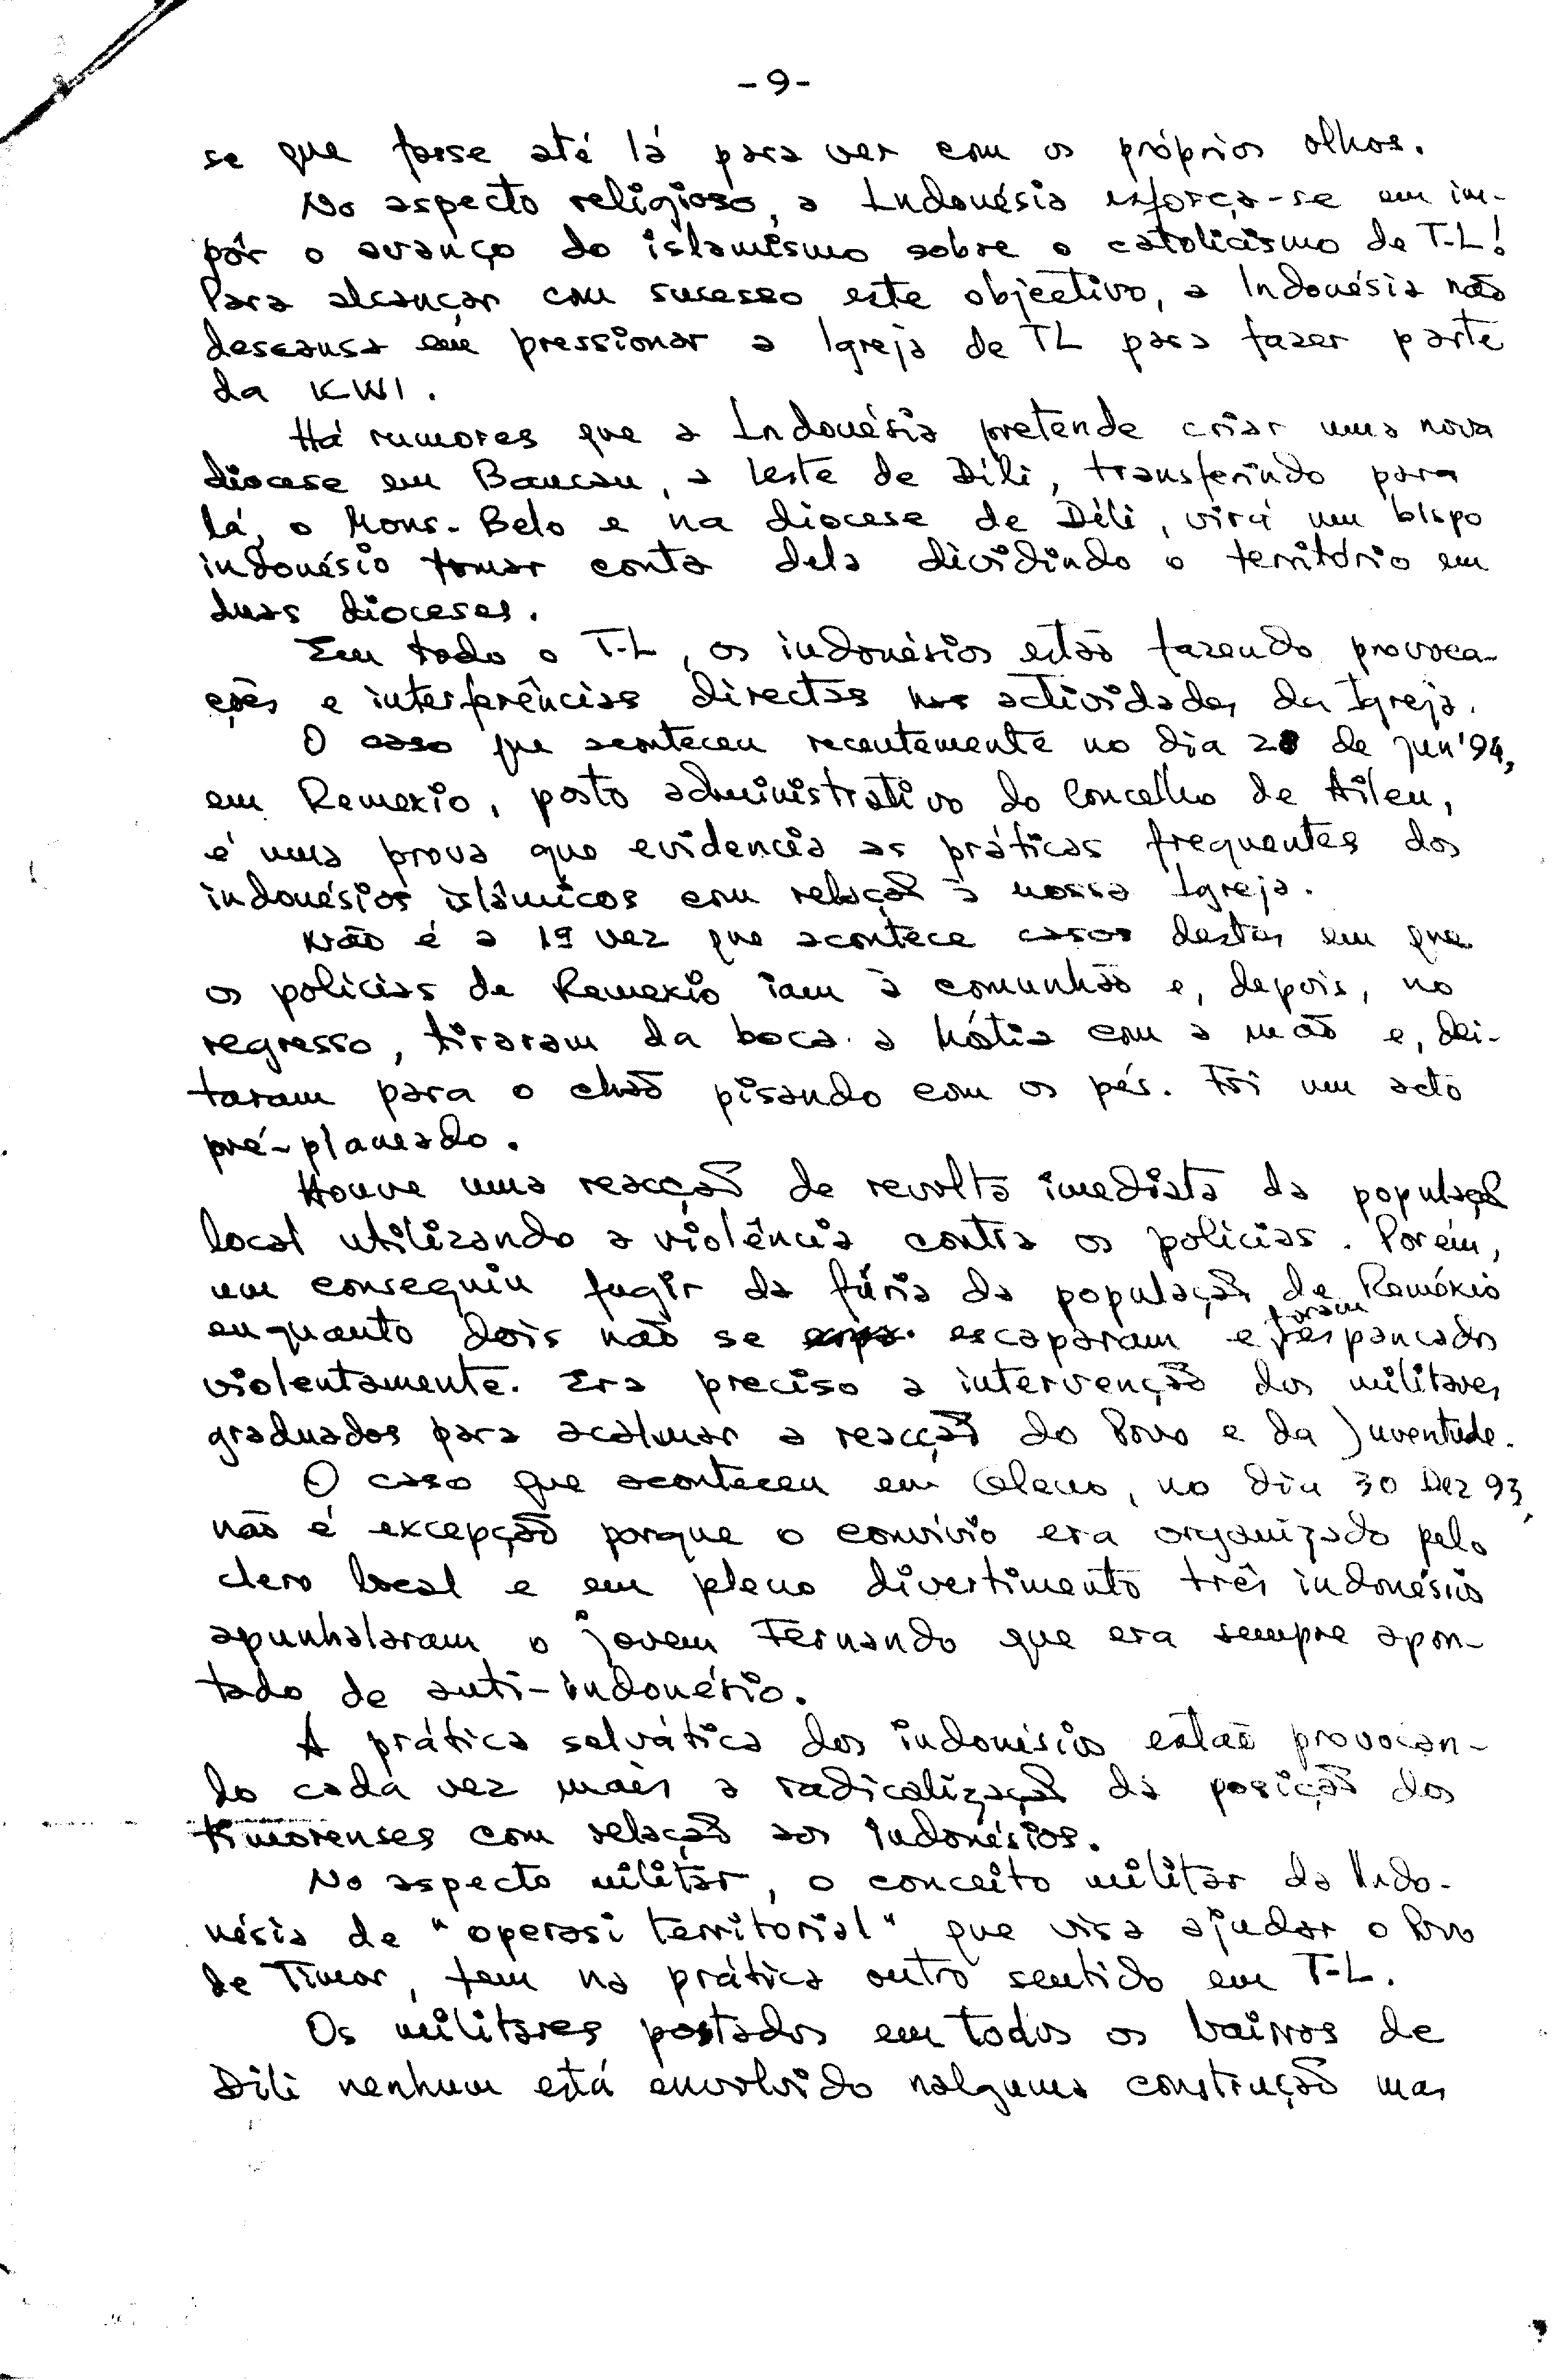 -9-
se que fosse até lá para ver com os próprios olhos.
No aspecto religioso, a Indonésia esforça-se em im-
pôr o avanço do islamismo sobre o catolicismo de T-L!
Para alcançar com sucesso este objectivo, a Indonésia não
descansa em pressionar a Igreja de TL para fazer parte
da KWI.
Há rumores que a Indonésia pretende criar uma nova
diocese em Baucau, a leste de Díli, transferindo para
lá, o Mons. Belo e na diocese de Díli, virá um bispo
indonésio tomar conta dela dividindo o território em
duas dioceses.
Em todo o T-L, os indonésios estão fazendo provoca-
ções e interferências directas nas actividades da Igreja.
O caso que aconteceu recentemente no dia 28 de jun'94,
em Remexio, posto administrativo do Concelho de Aileu,
é uma prova que evidencia as práticas frequentes dos
indonésios islâmicos com relação à nossa Igreja.
Não é a 1ª vez que acontece casos destes em que
os polícias de Remexio iam à comunhão e, depois, no
regresso, tiraram da boca a hóstia com a mão e, dei-
taram para o chão pisando com os pés. Foi um acto
pré-planeado.
Houve uma reacção de revolta imediata da população
local utilizando a violência contra os polícias. Porém,
um conseguiu fugir da fúria da população de Reméxio
enquanto dois não se escaparam e foram espancados
violentamente. Era preciso a intervenção dos militares
graduados para acalmar a reacção do Povo e da Juventude.
O caso que aconteceu em Gleno, no dia 30 Dez 93,
não é excepção porque o convívio era organizado pelo
clero local e em pleno divertimento três indonésios
apunhalaram o jovem Fernando que era sempre apon-
tado de anti-indonésio.
A prática selvática dos indonésios estão provocan-
do cada vez mais a radicalização da posição dos
timorenses com relação aos indonésios.
No aspecto militar, o conceito militar da Indo-
nésia de "operasi territorial" que visa ajudar o Povo
de Timor, tem na prática outro sentido em T-L.
Os militares postados em todos os bairros de
Díli nenhum está envolvido nalguma construção mas